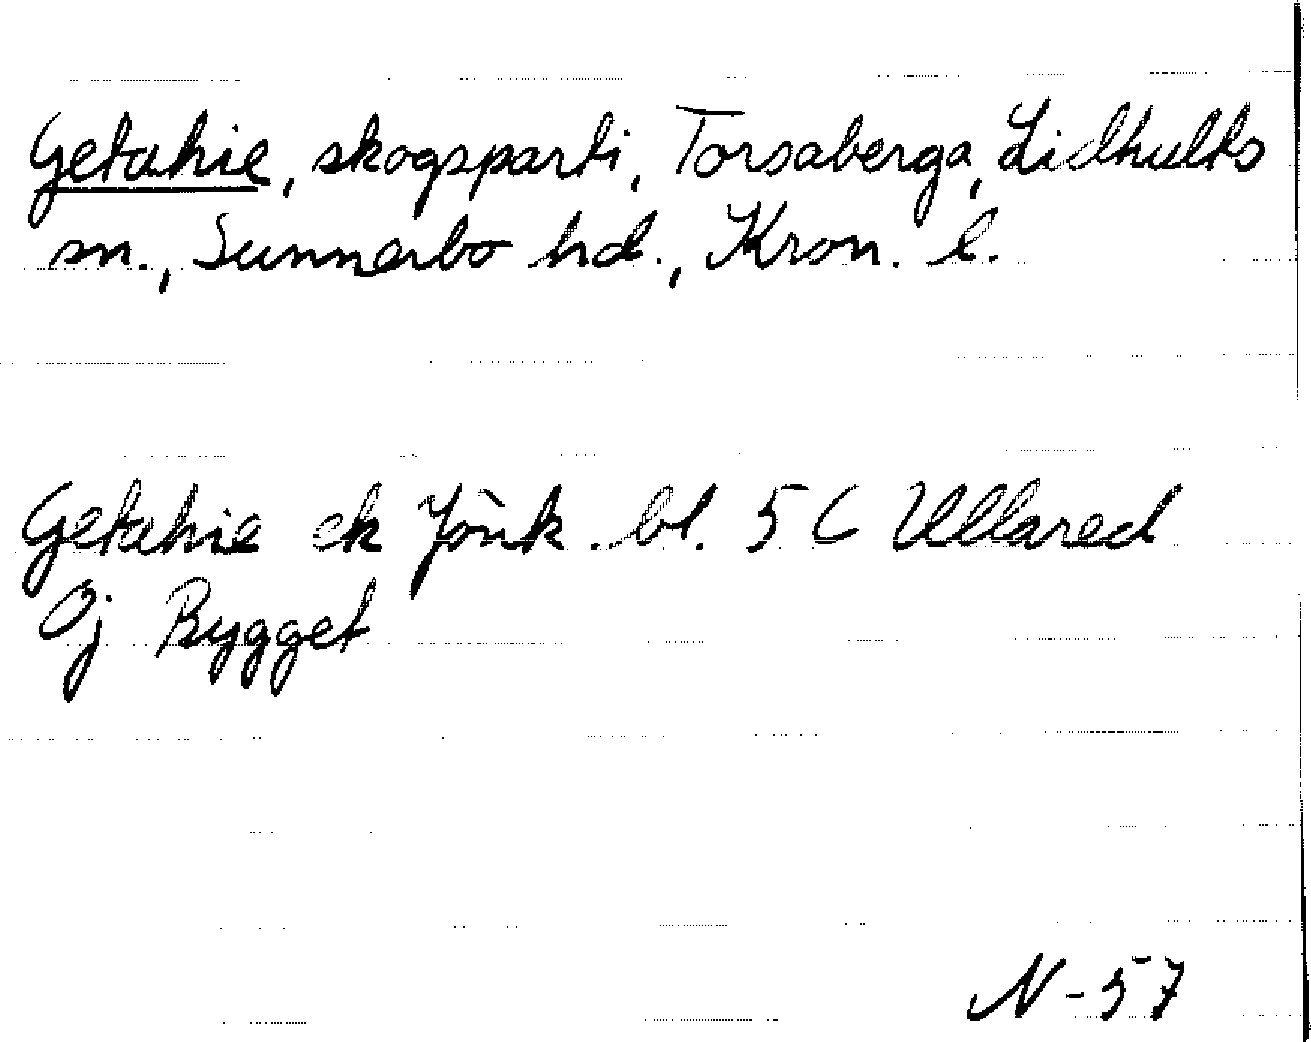 Getahie, skogsparti, Torsaberga, Lidhults
sn., Sunnerbo hd., Kron. l.
Getahie ek Jönk. bl. 5 C Ullared
Oj Bygget
N-57